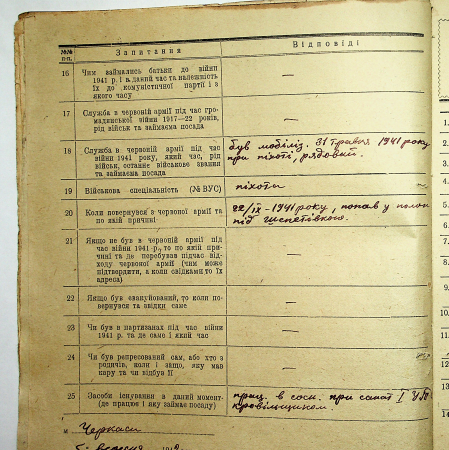 №№ п-п.
Запитання
Відповіді
16 Чим займались батьки до війни
1941 р. і в даний час та належність
їх до комуністичної партії і з
якого часу —
17 Служба в червоній армії під час гро-
мадянської війни 1917—22 років,
рід військ та займаєма посада —
18 Служба в червоній армії під час
війни 1941 року, який час, рід
військ, останнє військове звання
та займаєма посада
був мобіліз. 31 травня 1941 року
при піхоті, рядовий.
19 Військова спеціальність (№ ВУС) піхота
20 Коли повернувся з червоної армії та
по якій причині
22/ІХ - 1941 року, попав у полон
під
21 Якщо не був в червоній армії під
час війни 1941 р. то по якій при-
чині та де перебував підчас від-
ходу червоної армії (чим може
підтвердити, а коли свідками то їх
адреса) —
22 Якщо був евакуйований, то коли по-
вернувся та звідки саме —
23 Чи був в партизанах під час війни
1941 р. та де саме і який час —
24 Чи був репресований сам, або хто з
родичів, коли і защо, яку мав
кару та чи відбув її —
25 Засоби існування в даний момент-
(де працює і яку займає посаду)
прац. в при І
м Черкаси
вересня
1.
2.
3.
4.
5.
6.
7.
8.
9.
10
11
12
13
14